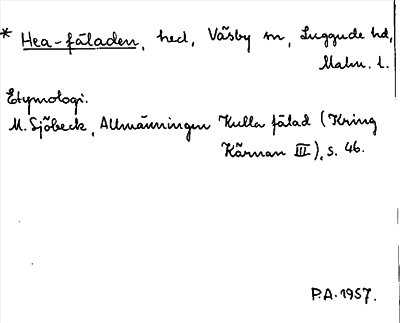 * Hea-fäladen, hed, Väsby sn, Luggude hd,
Malm. l.
Etymologi.
M. Sjöbeck, Allmänningen Kulla fälad (Kring
Kärnan III), s. 46.
P.A. 1957.